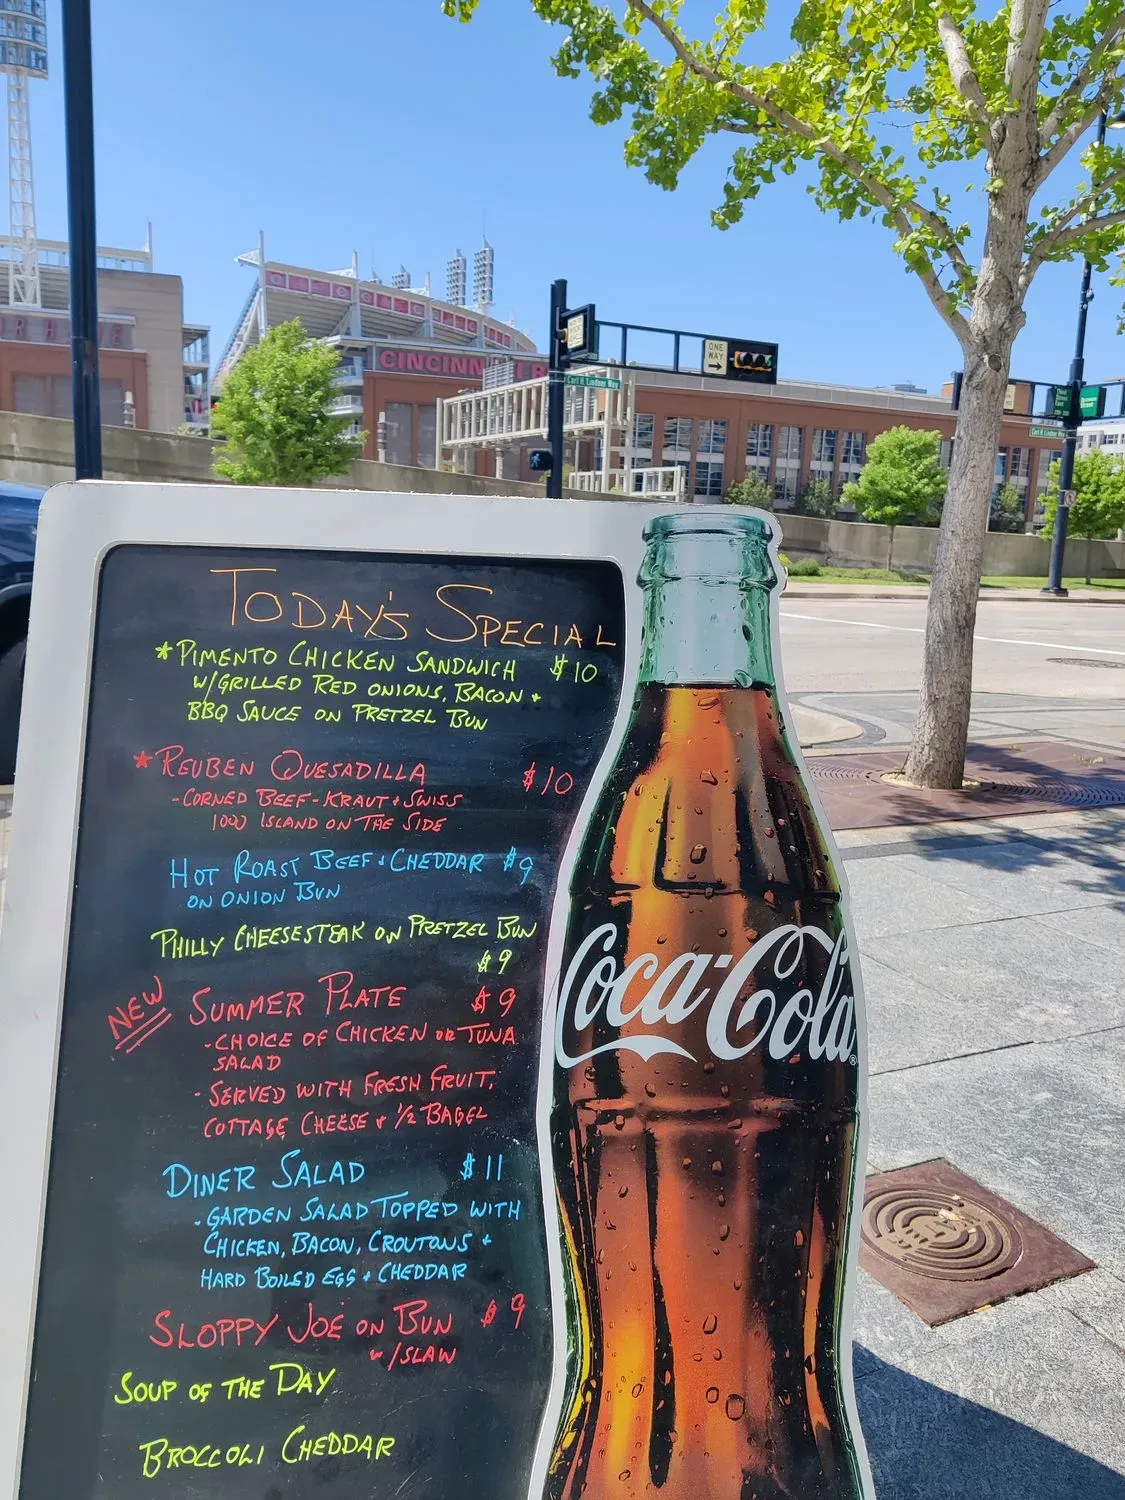 CINCINN
Carl H Lindner Way
ONE
WAY
TODAY'S SPECIAL
*PIMENTO CHICKEN SANDWICH $10
W/GRILLED RED ONIONS, BACON +
BBQ SAUCE ON PRETZEL BUN
*REUBEN QUESADILLA $10
-CORNED BEEF-KRAUT+SWISS
1000 ISLAND ON THE SIDE
HOT ROAST BEEF+CHEDDAR $9
ON ONION BUN
PHILLY CHEESESTEAK ON PRETZEL BUN
$9
NEW SUMMER PLATE $9
-CHOICE OF CHICKEN OR TUNA
SALAD
-SERVED WITH FRESH FRUIT,
COTTAGE CHEESE + 1/2 BAGEL
DINER SALAD $11
-GARDEN SALAD TOPPED WITH
CHICKEN, BACON, CROUTONS +
HARD BOILED EGG + CHEDDAR
SLOPPY JOE ON BUN $9
W/SLAW
SOUP OF THE DAY
BROCCOLI CHEDDAR
Coca-Cola